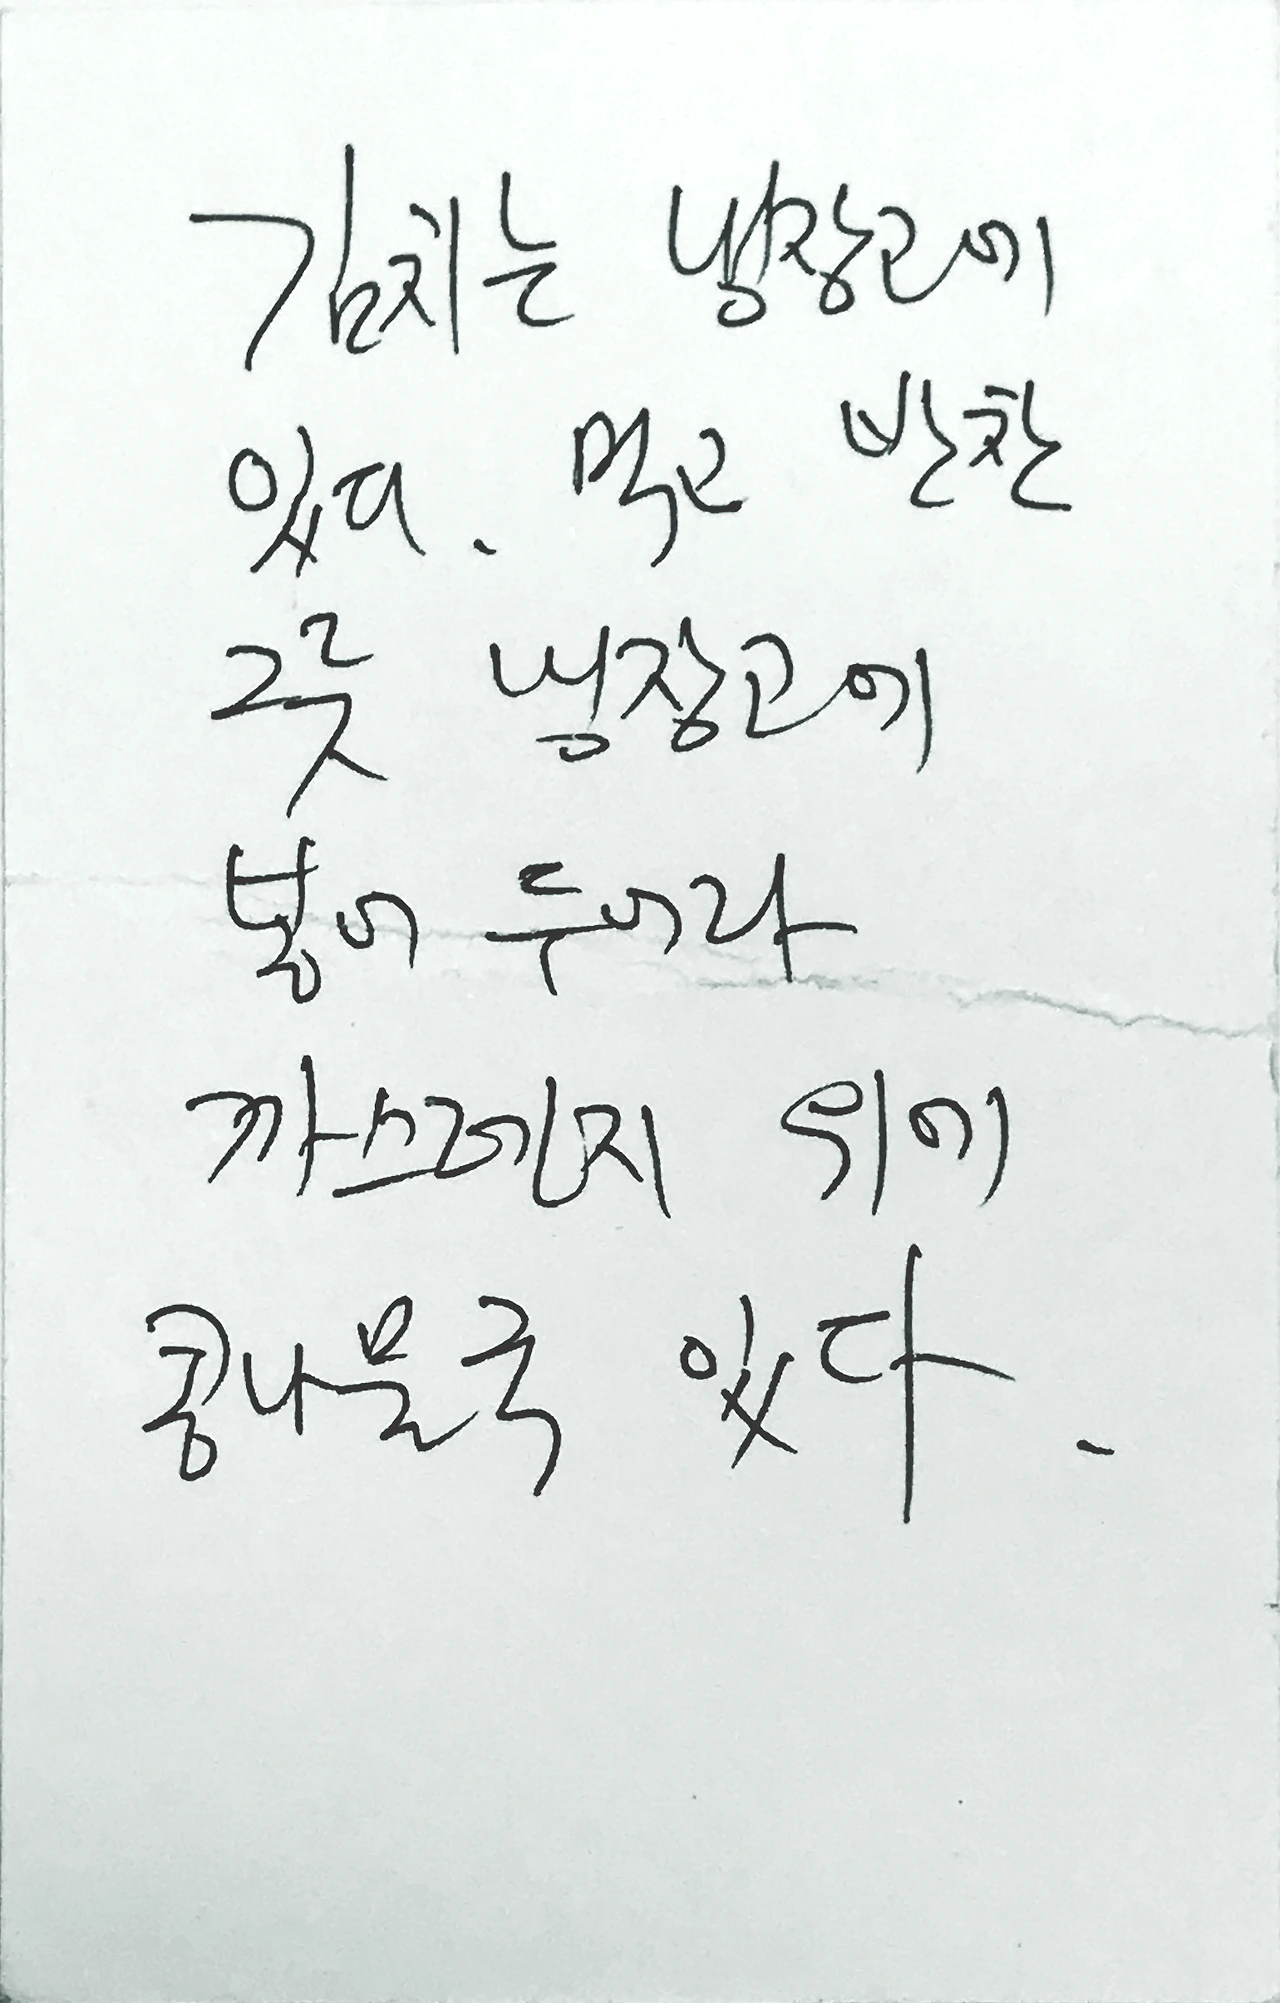 김치는 냉장고에
있다. 먹고 반찬
그릇 냉장고에
넣어 두어라
까스렌지 위에
콩나물국 있다.